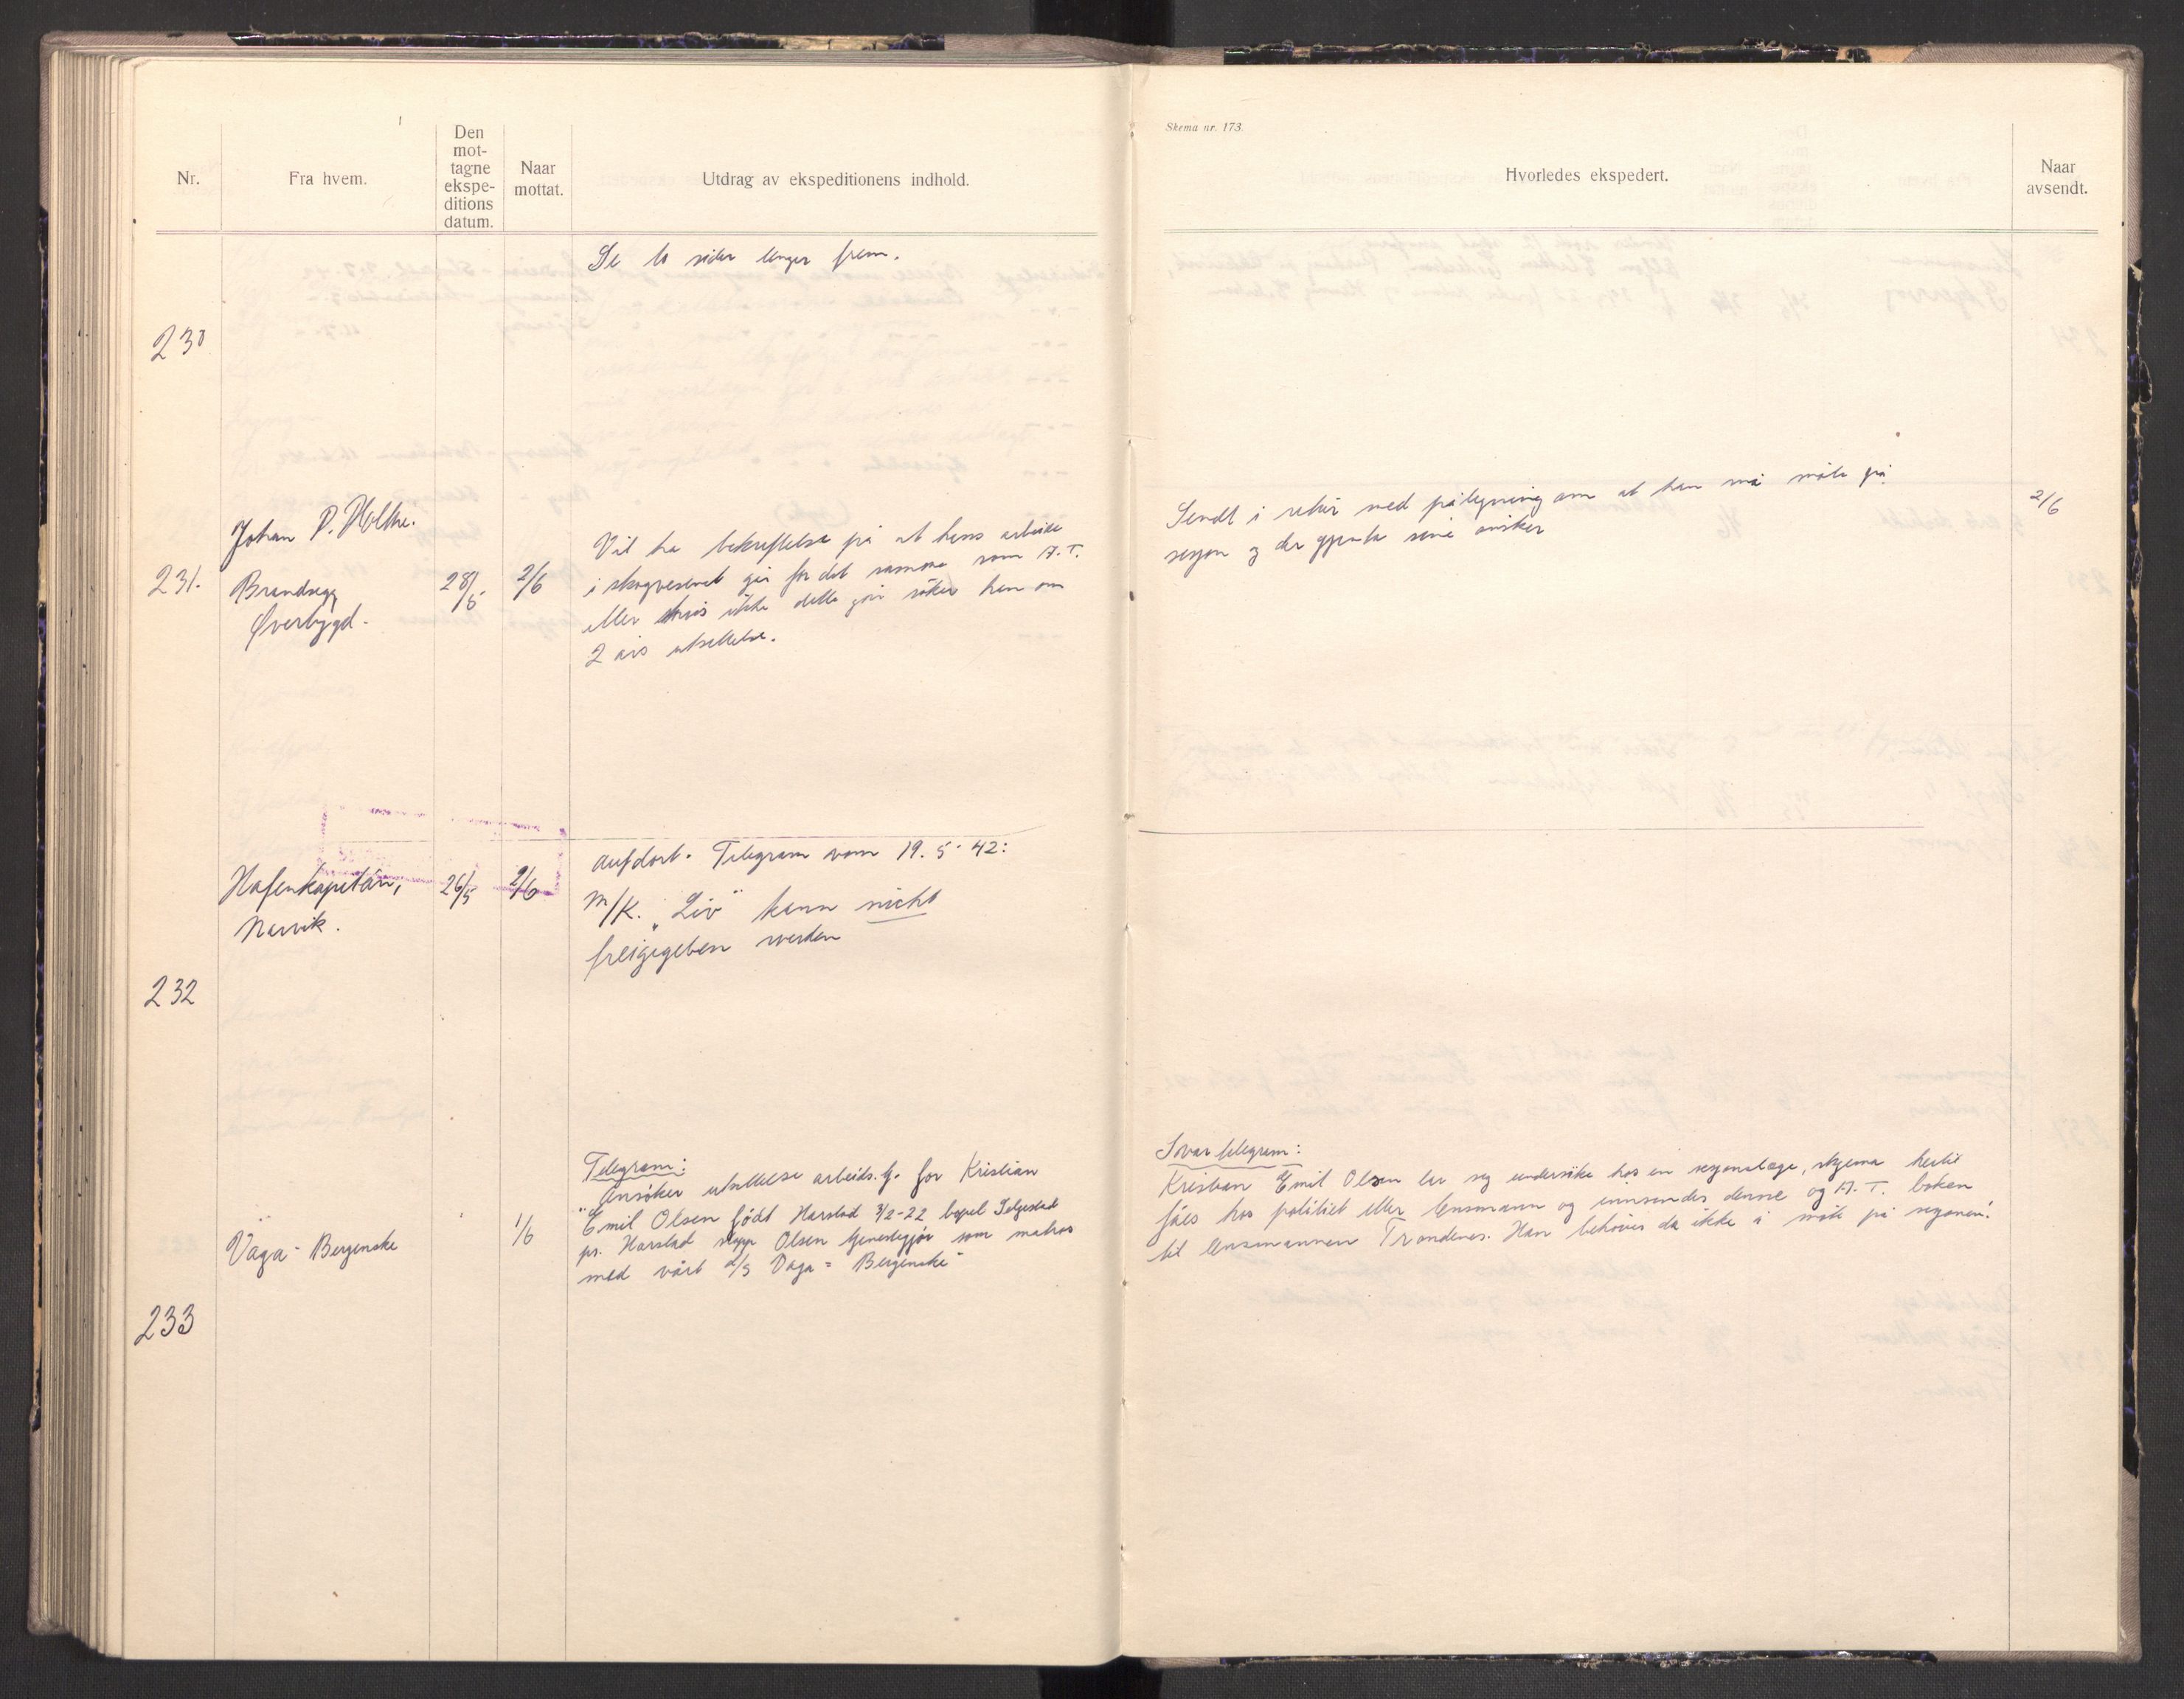 Nr.
Fra hvem.
Den
mot-
tagne
ekspe-
ditions
datum.
Naar
mottat.
Utdrag av ekspeditionens indhold.
Se to sider lenger frem.
230
Johan P. Holthe.
231.
Brandsegg
Øverbygd.
28/5
2/6
Vil ha bekreftelse på at hans arbeide
i skogvesenet går for det samme som A.T.
eller hvis ikke dette går søker han om
2 års utsettelse.
Hafenkapitän,
Narvik.
26/5
2/6
Auf dort. Telegram vom 19.5.42:
M/K. "Liv" kann nicht
freigegeben werden
232
Vaga - Bergenske
1/6
Telegram:
"Ansøker utsettelse arbeids.tj. for Kristian
Emil Olsen født Harstad 3/2-22 bopel
pr. Harstad stopp Olsen tjenestegjør som matros
med vårt d/s Vaga = Bergenske"
233
Skema nr. 173.
Hvorledes ekspedert.
Naar
avsendt.
Sendt i retur med påtegning om at han må møte på
sesjon og der gjenta sine ønsker
2/6
Svartelegram:
Kristian Emil Olsen lar seg undersøke hos en sesjonslege, skjema hertil
fåes hos politiet eller lensmann og innsendes denne og A.T. boken
til lensmannen Trondenes. Han behøver da ikke å møte på sesjonen.